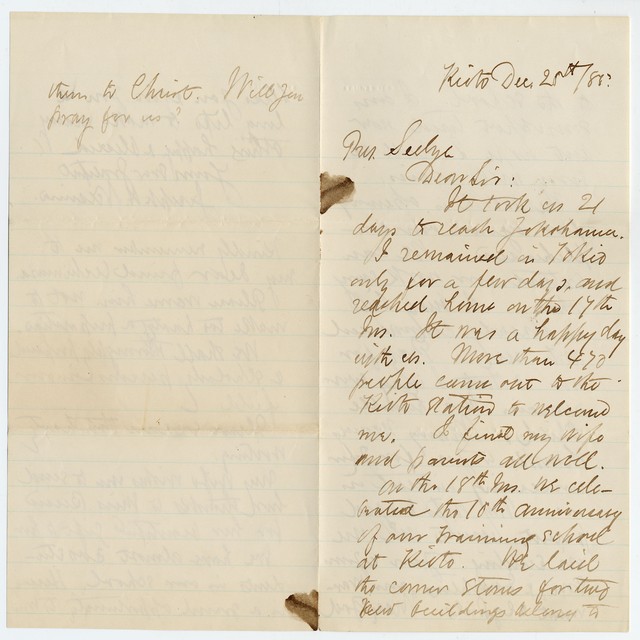 them to Christ. Will you
pray for us?
Kioto Dec. 25th/85.
Pres. Seelye
Dear Sir:
It took us 21
days to reach Yokohama.
I remained in Tokio
only for a few days, and
reached home on the 17th
ins. It was a happy day
with us. More than 470
people came out to the
Kioto station to welcome
me. I find my wife
and parents all well.
On the 18th ins. we cele-
brated the 10th anniversary
of our training school
at Kioto. We laid
the corner stones for two
new buildings belong to